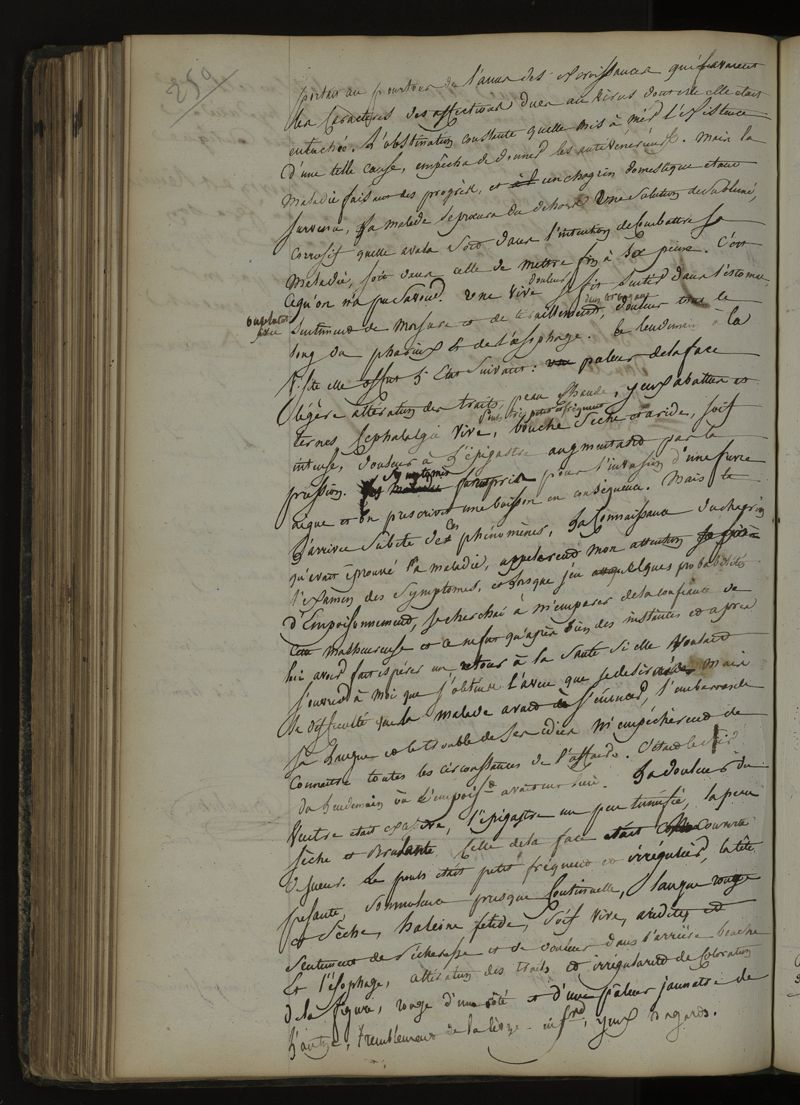 250
portait au pourtour de l'anus des excroissances qui avaient
les caractères des affections dues au virus dont elle était
entachée. L'obstination constante quelle mis à nier l'existence
d'une telle cause, empêcha de donner les antivénériens. Mais la
maladie faisant des progrès, et un chagrin domestique étant
survenu, la malade se procura du dehors une solution de sublimé
corrosif quelle avala soit dans l'intention de combattre sa
maladie, soit dans celle de mettre fin à ses peines. C'est
ce qu'on n'a pu savoir. Une vive douleur se fit sentir dans l'estomac,
sentiment de morsure et de douleur tout le
long du pharinx & de l'œsophage. Le lendemain à la
Vste elle offrit l'état suivant: paleur de la face
légère altération des traits, peau chaude, yeux abattus et
ternes, céphalalgie vive, pouls petit et fréquent bouche sèche et aride, soif
intense, douleur à l'épigastre augmentant par la
pression. symptomes pris pour l'invasion d'une fievre
aigue et on prescrivit une boisson en conséquence. Mais le
l'arrivée subite de ces phénomènes, la connaissance du chagrin
qu'avait éprouvé la malade, appelerent mon attention
l'examen des symptomes, et lorsque j'eu quelques probabilités
d'Empoisonnement, je cherchai à m'emparer de la confiance de
cette malheureuse et ce ne fut qu'après bien des instances et après
lui avoir fait espérer un retour à la santé si elle voulait
s'ouvrir à moi que j'obtins l'aveu que je desirais. Mais
la difficulté que la malade avait à s'énoncer, l'embarras de
sa langue et le trouble de ses idées m'empéchèrent de
connaitre toutes les circonstances de l'affaire. C'était le
du lendemain où l'empoist avait eu lieu. La douleur du
Ventre était , l'épigastre un peu tuméfié, la peau
sèche et brulante. Celle de la face était couverte
de sueur. Le pouls était petit fréquent et irrégulier, la tête
pesante, somnolence presque continuelle, langue rouge
et sèche, haleine fétide, soif vive, aridité et
sentiment de sécheresse et de douleur dans l'arrière bouche
et l'ésophage, altération des traits et irrégularité de coloration
de la figure, rouge d'un côté et d'une pâleur jaunatre de
l'autre, tremblement de la lèvre infre, yeux hagards.